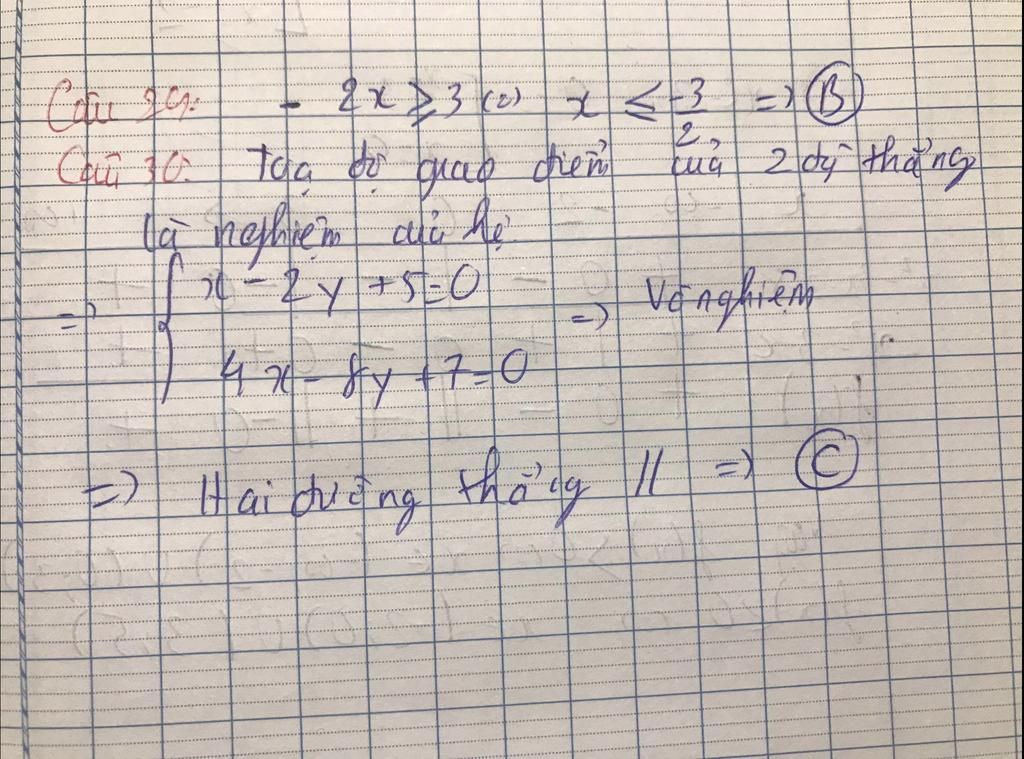 Câu 29: - 2x ≥ 3 (=) x ≤ -3/2 => B
Câu 30: Tọa độ giao điểm của 2 đg thẳng
là nghiệm của hệ.
=> { x - 2y + 5 = 0
4x - 8y + 7 = 0 => Vô nghiệm
=> Hai đường thẳng // => C